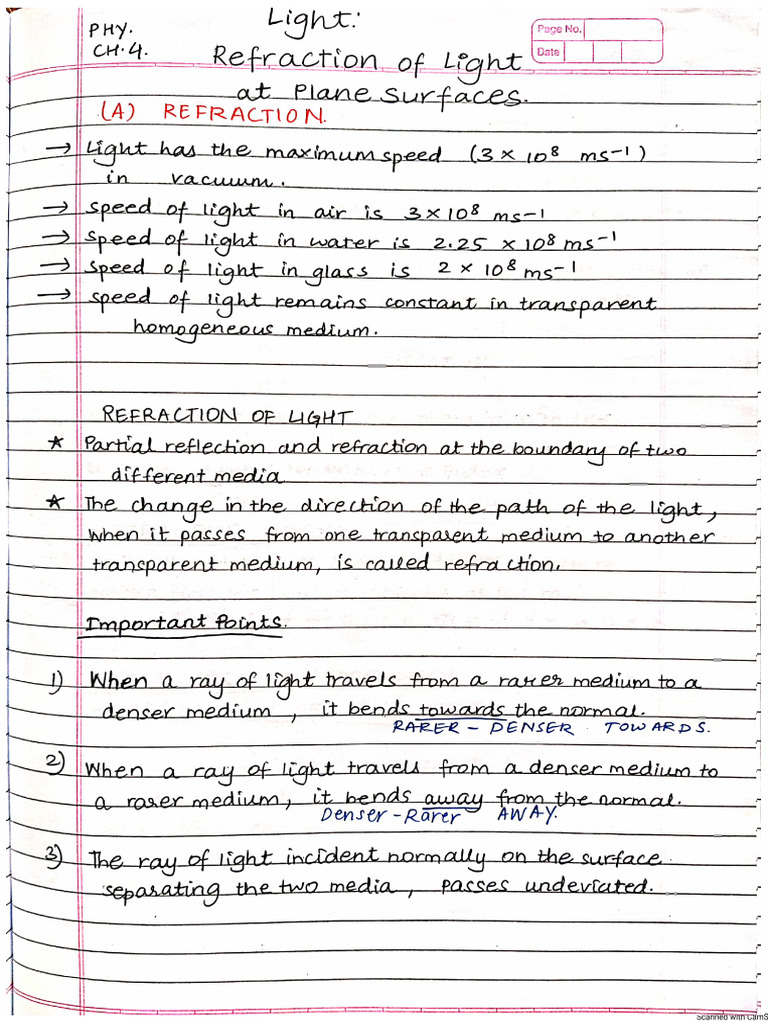 PHY.
CH.4.
Light:
Refraction of Light
at Plane Surfaces.
Page No.
Date
(A) REFRACTION.
→ Light has the maximum speed (3 × 10⁸ ms⁻¹)
in vacuum.
→ speed of light in air is 3×10⁸ ms⁻¹
→ speed of light in water is 2.25 × 10⁸ ms⁻¹
→ speed of light in glass is 2 × 10⁸ ms⁻¹
→ speed of light remains constant in transparent
homogeneous medium.
REFRACTION OF LIGHT
* Partial reflection and refraction at the boundary of two
different media
* The change in the direction of the path of the light,
when it passes from one transparent medium to another
transparent medium, is called refraction.
Important Points.
1) When a ray of light travels from a rarer medium to a
denser medium, it bends towards the normal.
RARER - DENSER TOWARDS.
2) When a ray of light travels from a denser medium to
a rarer medium, it bends away from the normal.
Denser - Rarer AWAY.
3) The ray of light incident normally on the surface
separating the two media, passes undeviated.
Scanned with CamS